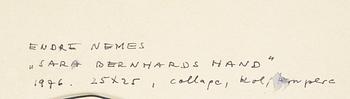 ENDRE NEMES
„SARA BERNHARDS HAND"
1976. 25x25, collage, kol, tempera